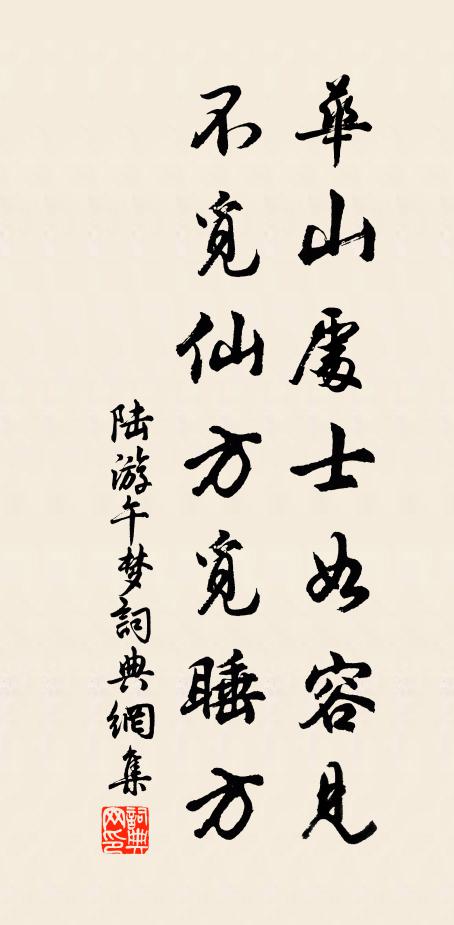 華山處士如容見
不覓仙方覓睡方
陆游午梦詞典網集
詞典
网印